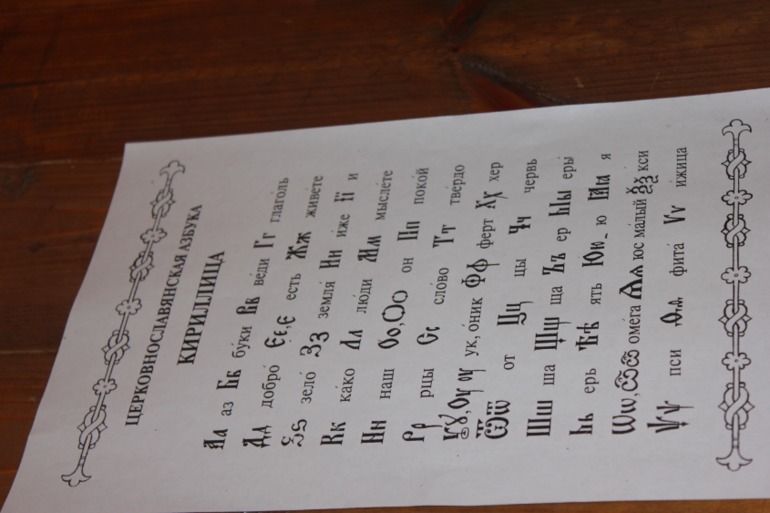 ЦЕРКОВНОСЛАВЯНСКАЯ АЗБУКА
КИРИЛЛИЦА
Аа аз Бб бу́ки Вв ве́ди Гг глаго́ль
Дд добро́ Єє,е есть Жж живе́те
Ѕѕ зело́ Зз земля́ Ии и́же Її и
Кк ка́ко Лл лю́ди Мм мысле́те
Нн наш Оо,Ѻѻ он Пп поко́й
Рр рцы Сс сло́во Тт тве́рдо
Ꙋꙋ,Оу оу ук, о́ник Фф ферт Хх хер
Ѿѿ от Цц цы Чч червь
Шш ша Щщ ща Ъъ ер Ы ы еры́
Ьь ерь Ѣѣ ять Юю ю Ꙗꙗ я
Ѡѡ,Ѽѽ оме́га Ѧѧ юс ма́лый Ѯѯ кси
Ѱѱ пси Ѳѳ фита́ Ѵѵ и́жица